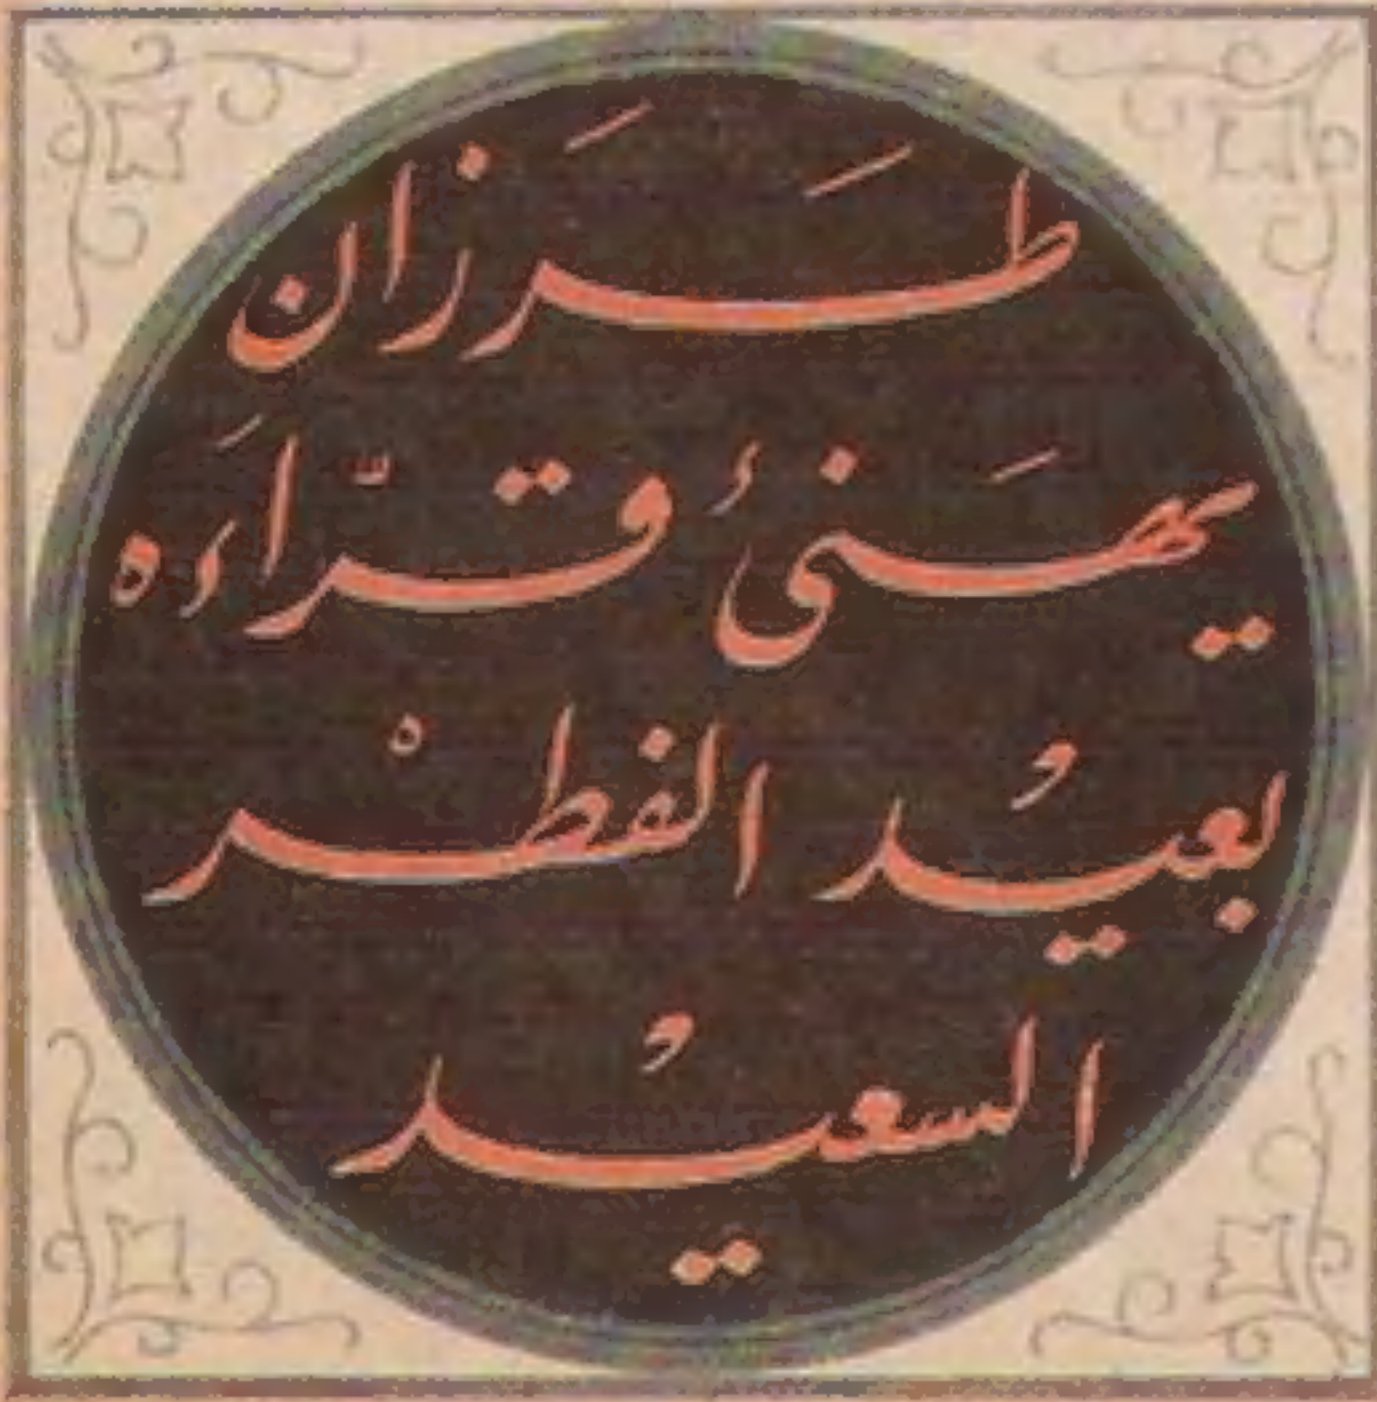 طَرَزَان
يهَنئُ قرّاَءه
بعيُد الفطرْ
السعيُد